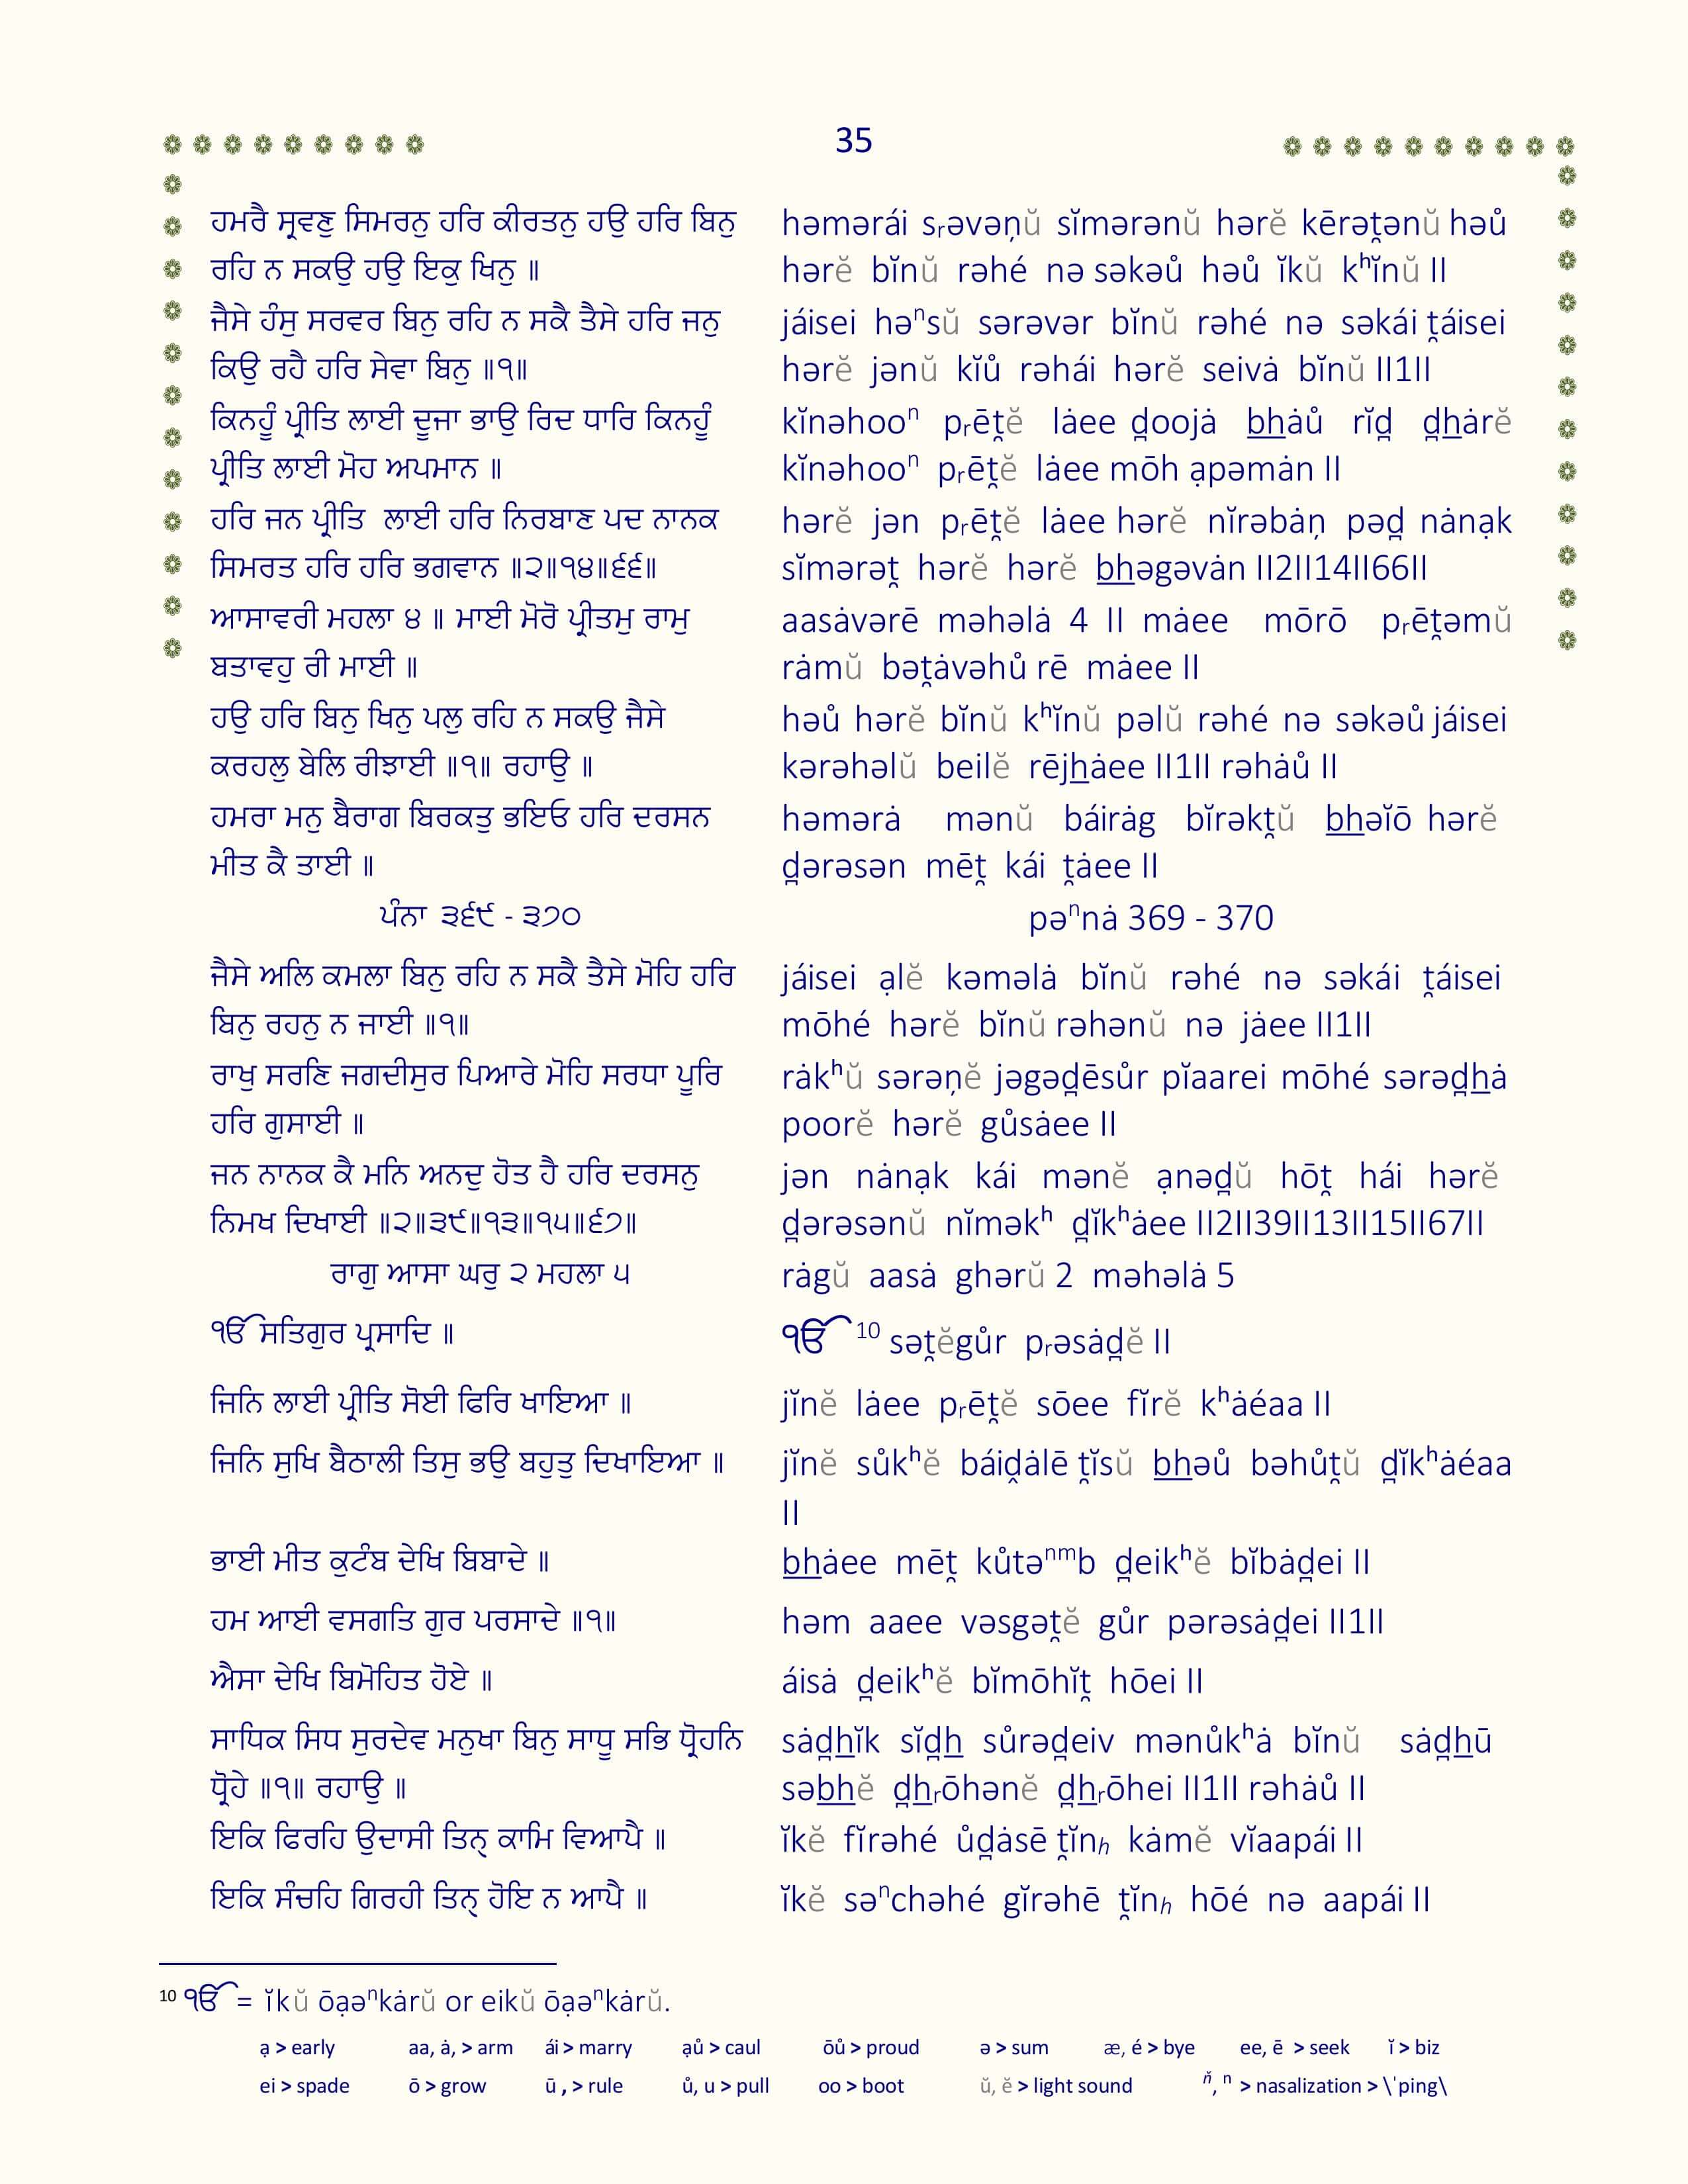 35
ਹਮਰੈ ਸ੍ਰਵਣੁ ਸਿਮਰਨੁ ਹਰਿ ਕੀਰਤਨੁ ਹਉ ਹਰਿ ਬਿਨੁ
ਰਹਿ ਨ ਸਕਉ ਹਉ ਇਕੁ ਖਿਨੁ ॥
ਜੈਸੇ ਹੰਸੁ ਸਰਵਰ ਬਿਨੁ ਰਹਿ ਨ ਸਕੈ ਤੈਸੇ ਹਰਿ ਜਨੁ
ਕਿਉ ਰਹੈ ਹਰਿ ਸੇਵਾ ਬਿਨੁ ॥੧॥
ਕਿਨਹੂੰ ਪ੍ਰੀਤਿ ਲਾਈ ਦੂਜਾ ਭਾਉ ਰਿਦ ਧਾਰਿ ਕਿਨਹੂੰ
ਪ੍ਰੀਤਿ ਲਾਈ ਮੋਹ ਅਪਮਾਨ ॥
ਹਰਿ ਜਨ ਪ੍ਰੀਤਿ ਲਾਈ ਹਰਿ ਨਿਰਬਾਣ ਪਦ ਨਾਨਕ
ਸਿਮਰਤ ਹਰਿ ਹਰਿ ਭਗਵਾਨ ॥੨॥੧੪॥੬੬॥
ਆਸਾਵਰੀ ਮਹਲਾ ੪ ॥ ਮਾਈ ਮੋਰੋ ਪ੍ਰੀਤਮੁ ਰਾਮੁ
ਬਤਾਵਹੁ ਰੀ ਮਾਈ ॥
ਹਉ ਹਰਿ ਬਿਨੁ ਖਿਨੁ ਪਲੁ ਰਹਿ ਨ ਸਕਉ ਜੈਸੇ
ਕਰਹਲੁ ਬੇਲਿ ਰੀਝਾਈ ॥੧॥ ਰਹਾਉ ॥
ਹਮਰਾ ਮਨੁ ਬੈਰਾਗ ਬਿਰਕਤੁ ਭਇਓ ਹਰਿ ਦਰਸਨ
ਮੀਤ ਕੈ ਤਾਈ ॥
ਪੰਨਾ ੩੬੯ - ੩੭੦
ਜੈਸੇ ਅਲਿ ਕਮਲਾ ਬਿਨੁ ਰਹਿ ਨ ਸਕੈ ਤੈਸੇ ਮੋਹਿ ਹਰਿ
ਬਿਨੁ ਰਹਨੁ ਨ ਜਾਈ ॥੧॥
ਰਾਖੁ ਸਰਣਿ ਜਗਦੀਸੁਰ ਪਿਆਰੇ ਮੋਹਿ ਸਰਧਾ ਪੂਰਿ
ਹਰਿ ਗੁਸਾਈ ॥
ਜਨ ਨਾਨਕ ਕੈ ਮਨਿ ਅਨਦੁ ਹੋਤ ਹੈ ਹਰਿ ਦਰਸਨੁ
ਨਿਮਖ ਦਿਖਾਈ ॥੨॥੩੯॥੧੩॥੧੫॥੬੭॥
ਰਾਗੁ ਆਸਾ ਘਰੁ ੨ ਮਹਲਾ ੫
ੴ ਸਤਿਗੁਰ ਪ੍ਰਸਾਦਿ ॥
ਜਿਨਿ ਲਾਈ ਪ੍ਰੀਤਿ ਸੋਈ ਫਿਰਿ ਖਾਇਆ ॥
ਜਿਨਿ ਸੁਖਿ ਬੈਠਾਲੀ ਤਿਸੁ ਭਉ ਬਹੁਤੁ ਦਿਖਾਇਆ ॥
ਭਾਈ ਮੀਤ ਕੁਟੰਬ ਦੇਖਿ ਬਿਬਾਦੇ ॥
ਹਮ ਆਈ ਵਸਗਤਿ ਗੁਰ ਪਰਸਾਦੇ ॥੧॥
ਐਸਾ ਦੇਖਿ ਬਿਮੋਹਿਤ ਹੋਏ ॥
ਸਾਧਿਕ ਸਿਧ ਸੁਰਦੇਵ ਮਨੁਖਾ ਬਿਨੁ ਸਾਧੂ ਸਭਿ ਧ੍ਰੋਹਨਿ
ਧ੍ਰੋਹੇ ॥੧॥ ਰਹਾਉ ॥
ਇਕਿ ਫਿਰਹਿ ਉਦਾਸੀ ਤਿਨ੍ਹ ਕਾਮਿ ਵਿਆਪੈ ॥
ਇਕਿ ਸੰਚਹਿ ਗਿਰਹੀ ਤਿਨ੍ਹ ਹੋਇ ਨ ਆਪੈ ॥
həmərái sᵣəvəņŭ sĭmərənŭ hərĕ kērəţənŭ həů
hərĕ bĭnŭ rəhé nə səkəů həů ĭkŭ kʰĭnŭ II
jáisei həⁿsŭ sərəvər bĭnŭ rəhé nə səkái ţáisei
hərĕ jənŭ kĭů rəhái hərĕ seivȧ bĭnŭ II1II
kĭnəhooⁿ pᵣēţĕ lȧee d̪oojȧ b̲h̲ȧů rĭd̪ d̪h̲ȧrĕ
kĭnəhooⁿ pᵣēţĕ lȧee mōh ạpəmȧn II
hərĕ jən pᵣēţĕ lȧee hərĕ nĭrəbȧņ pəd̪ nȧnạk
sĭmərəţ hərĕ hərĕ b̲h̲əgəvȧn II2II14II66II
aasȧvərē məhəlȧ 4 II mȧee mōrō pᵣēţəmŭ
rȧmŭ bəţȧvəhů rē mȧee II
həů hərĕ bĭnŭ kʰĭnŭ pəlŭ rəhé nə səkəů jáisei
kərəhəlŭ beilĕ rējh̲ȧee II1II rəhȧů II
həmərȧ mənŭ báirȧg bĭrəkţŭ b̲h̲əĭō hərĕ
d̪ərəsən mēţ kái ţȧee II
pəⁿnȧ 369 - 370
jáisei ạlĕ kəməlȧ bĭnŭ rəhé nə səkái ţáisei
mōhé hərĕ bĭnŭ rəhənŭ nə jȧee II1II
rȧkʰŭ sərəņĕ jəgəd̪ēsůr pĭaarei mōhé sərəd̪h̲ȧ
poorĕ hərĕ gůsȧee II
jən nȧnạk kái mənĕ ạnəd̪ŭ hōţ hái hərĕ
d̪ərəsənŭ nĭməkʰ d̪ĭkʰȧee II2II39II13II15II67II
rȧgŭ aasȧ ghərŭ 2 məhəlȧ 5
ੴ 10 səţĕgůr pᵣəsȧd̪ĕ II
jĭnĕ lȧee pᵣēţĕ sōee fĭrĕ kʰȧéaa II
jĭnĕ sůkʰĕ báiḓȧlē ţĭsŭ b̲h̲əů bəhůţŭ d̪ĭkʰȧéaa
II
b̲h̲ȧee mēţ kůtəⁿᵐb d̪eikʰĕ bĭbȧd̪ei II
həm aaee vəsgəţĕ gůr pərəsȧd̪ei II1II
áisȧ d̪eikʰĕ bĭmōhĭţ hōei II
sȧd̪h̲ĭk sĭd̪h̲ sůrəd̪eiv mənůkʰȧ bĭnŭ sȧd̪h̲ū
səb̲h̲ĕ d̪h̲ᵣōhənĕ d̪h̲ᵣōhei II1II rəhȧů II
ĭkĕ fĭrəhé ůd̪ȧsē ţĭnₕ kȧmĕ vĭaapái II
ĭkĕ səⁿchəhé gĭrəhē ţĭnₕ hōé nə aapái II
10 ੴ = ĭkŭ ōạəⁿkȧrŭ or eikŭ ōạəⁿkȧrŭ.
ạ > early aa, ȧ, > arm ái > marry ạů > caul ōů > proud ə > sum æ, é > bye ee, ē > seek ĭ > biz
ei > spade ō > grow ū , > rule ů, u > pull oo > boot ŭ, ĕ > light sound ň, ⁿ > nasalization > \ˈping\